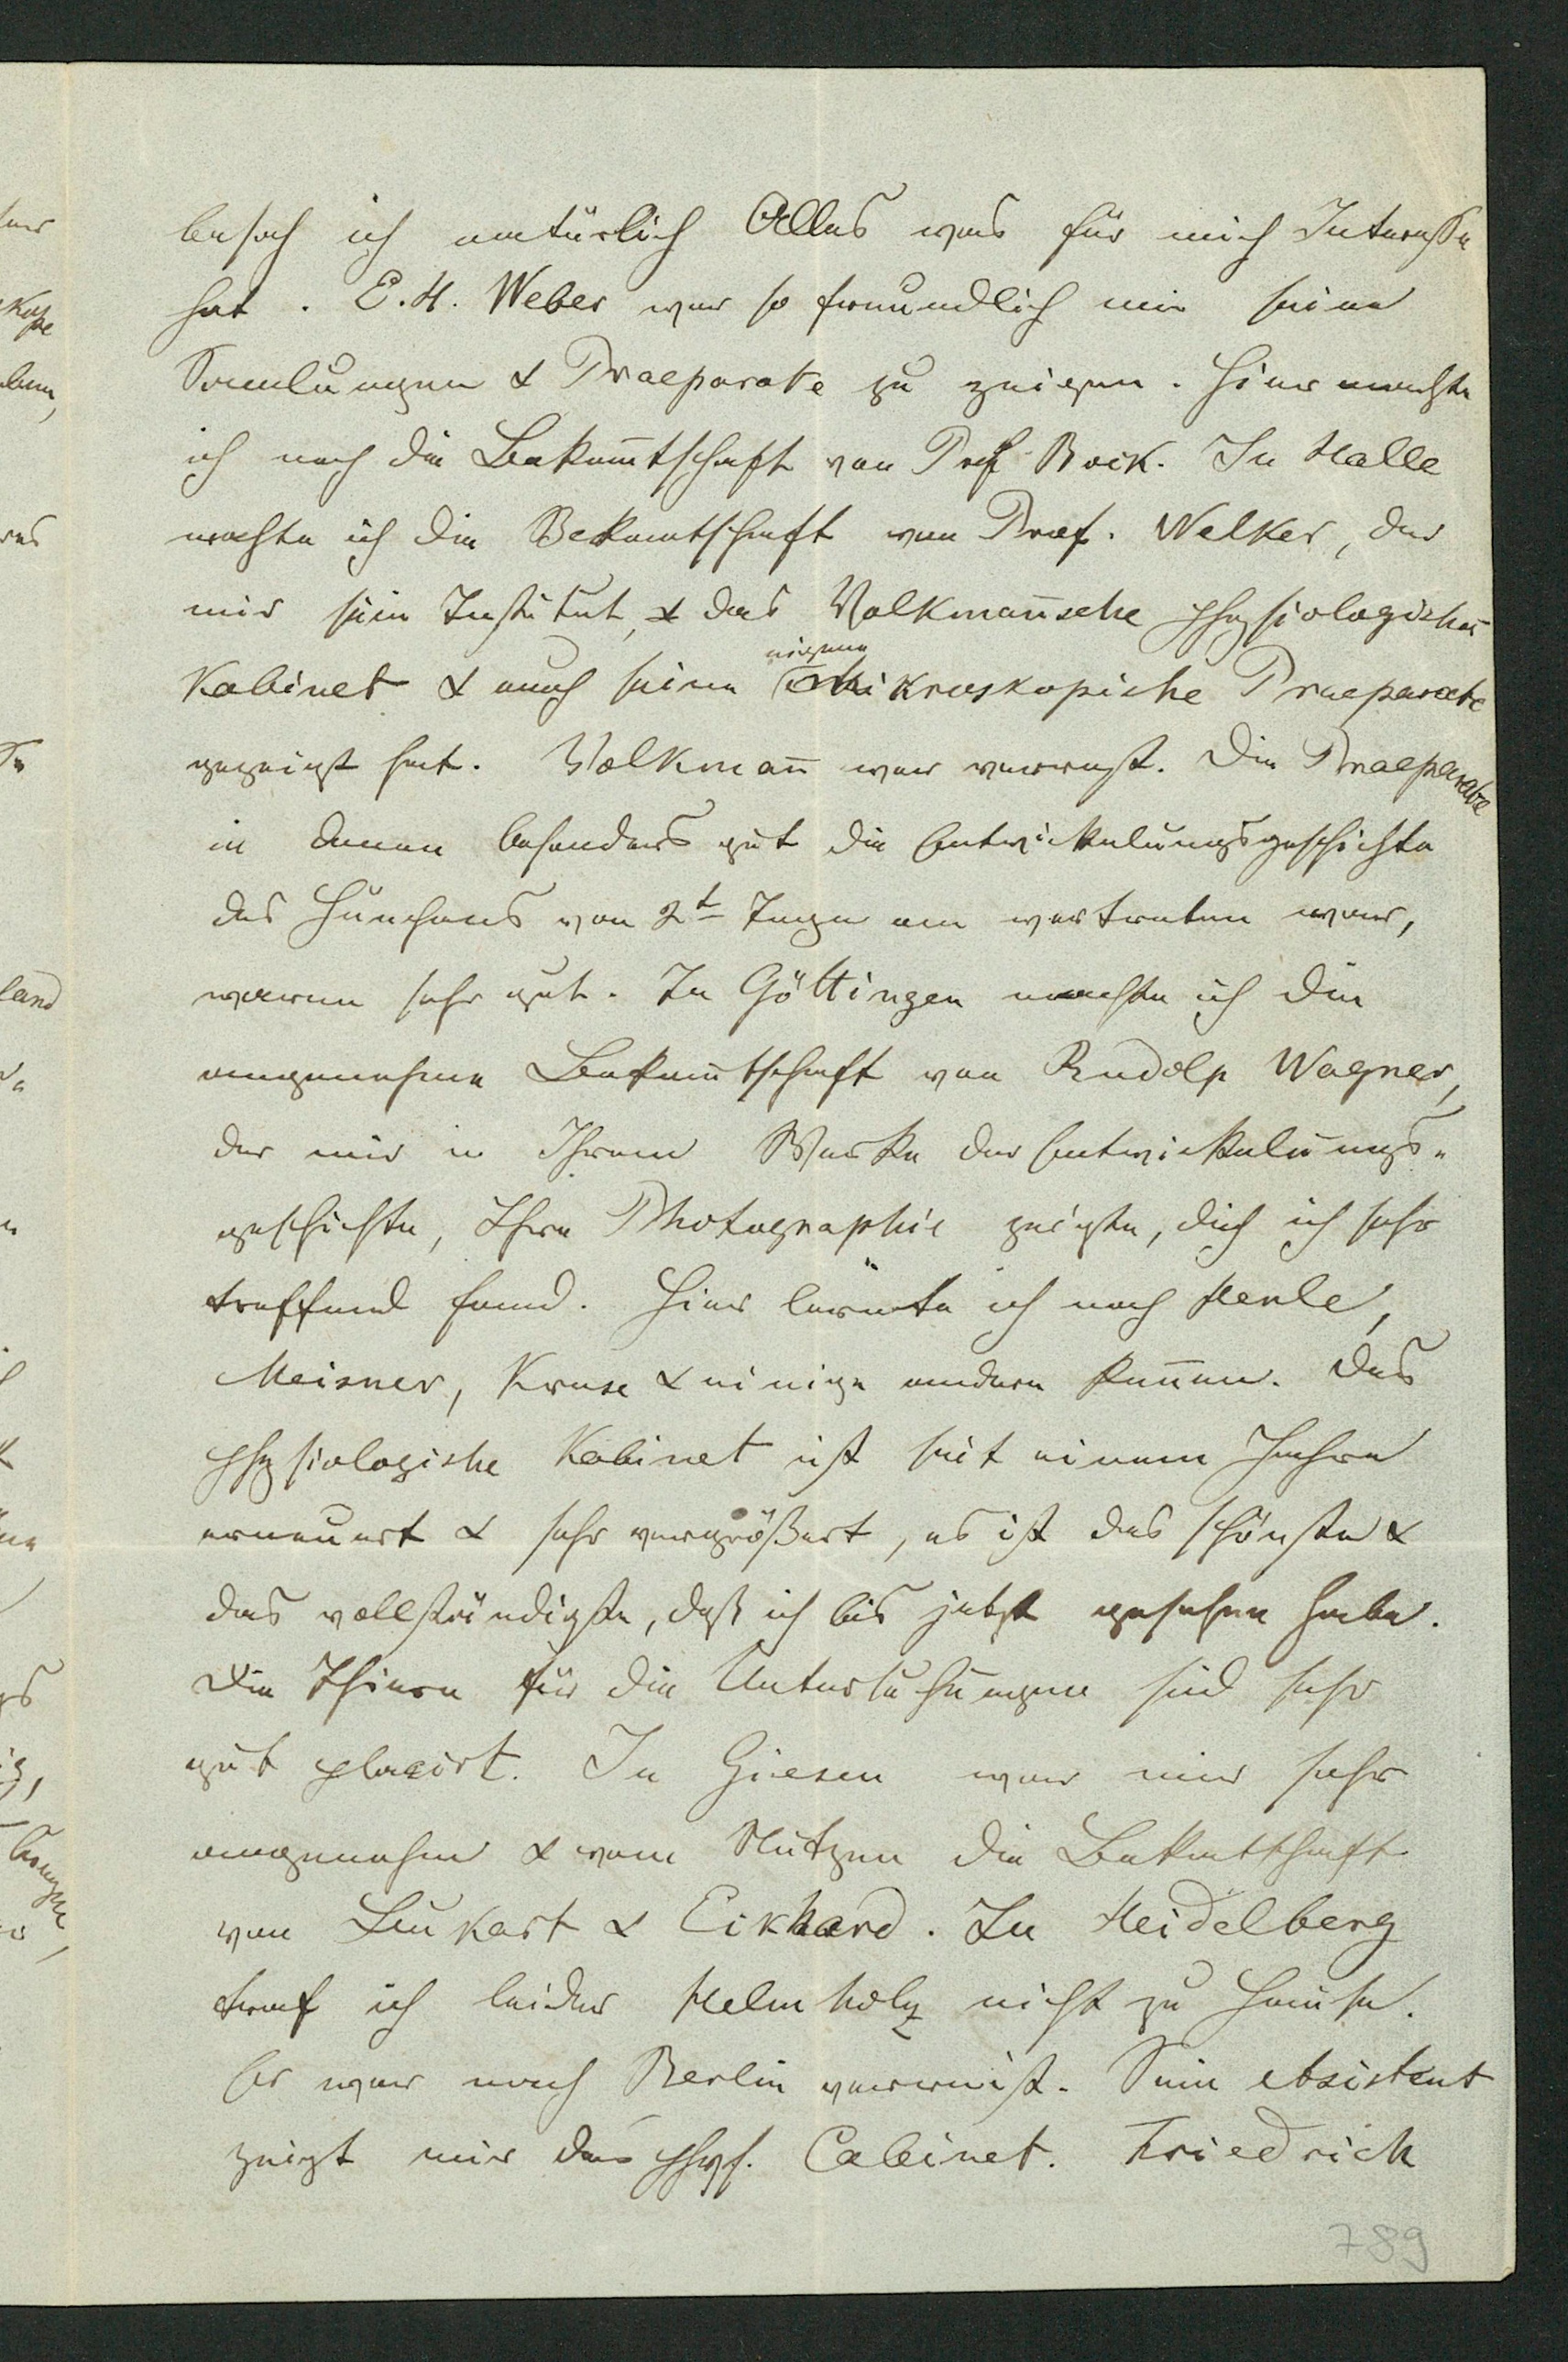 besah ich natürlich Alles was für mich Interesse
hat. E. H. Weber war so freundlich mir seine
Samlungen & Praeparate zu zeigen. Hier machte
ich noch die Bekan̄tschaft von Prof. Bock. In Halle
machte ich die Bekantschaft von Prof. Welker, der
mir sein Institut, & das Volkman̄sche physiologische
Kabinet & auch seine eigene mikroskopische Praeparate
gezeigt hat. Volkman̄ war verreist. Die Praeparate
in denen besonders gut die Entwickelungsgeschichte
des Hünchens von 2t Tage an vertreten war,
waren sehr gut. In Göttingen machte ich die
angenehme Bekan̄tschaft von Rudolp Wagner,
der mir in Ihrem Werke der Entwickelungs-
geschichte, Ihre Photographie zeigte, die ich sehr
treffend fand. Hier lernte ich noch Henle,
Meisner, Kruse & einige andere ken̄en. Das
physiologische Kabinet ist seit einem Jahre
erneuert & sehr vergrößert, es ist das schönste &
das vollständigste, daß ich bis jetzt gesehen habe.
Die Thiere für die Untersuchungen sind sehr
gut placirt. In Giesen war mir sehr
angenehm & vom Nutzen die Bekantschaft
von Leukart & Eikhard. In Heidelberg
traf ich leider Helmholz nicht zu Hause.
Er war nach Berlin verreist. Sein Assistent
zeigt mir das phys. Cabinet. Friedrich
789